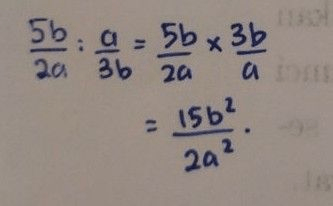 5b/2a : a/3b = 5b/2a × 3b/a
= 15b²/2a².